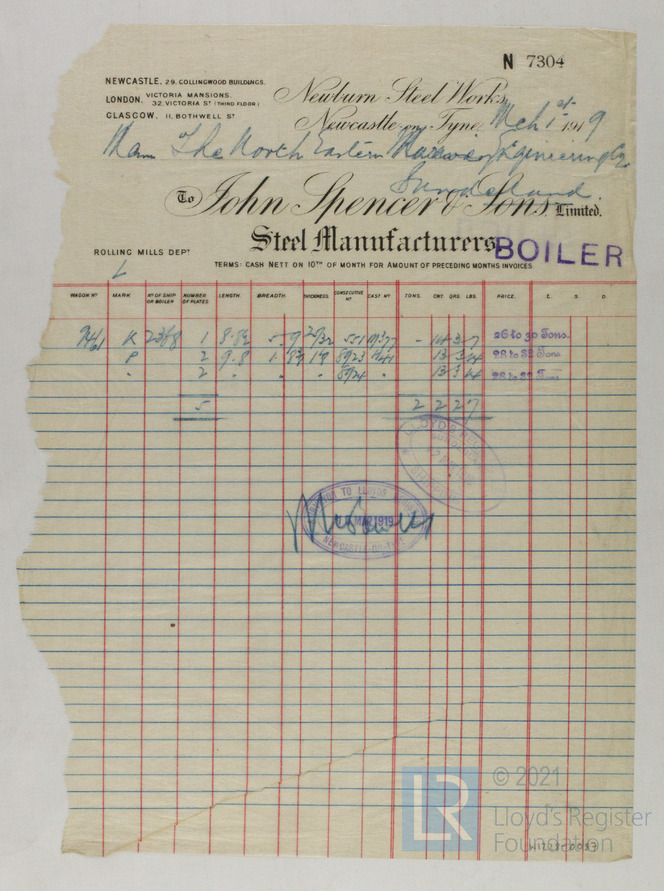 N 7304
NEWCASTLE. 29, COLLINGWOOD BUILDINGS.
LONDON. VICTORIA MANSIONS.
32, VICTORIA ST (THIRD FLOOR)
GLASGOW. 11, BOTHWELL ST
Newburn Steel Works,
Newcastle-on-Tyne, Mch 1st 1919
The North Eastern Marine Engineering Co.
Sunderland
To John Spencer & Sons Limited.
Steel Manufacturers.
BOILER
ROLLING MILLS DEPT
TERMS: CASH NETT ON 10TH OF MONTH FOR AMOUNT OF PRECEDING MONTHS INVOICES
WAGON NO MARK NO OF SHIP OR BOILER NUMBER OF PLATES LENGTH. BREADTH. THICKNESS. CONSECUTIVE NO CAST NO TONS. CWT. QRS. LBS. PRICE. £. S. D.
K 2368 1 - 14 3 7 26 to 30 Tons.
P 2 9.8 8923 13 3 14 28 to 32 Tons
" 2 " " " 8924 " 13 3 14 28 to 32 Tons
5 2 2 2 7
LLOYD'S
TO LLOYD'S
MAR 1919
NEWCASTLE-ON-TYNE
LR
© 2021
Lloyd's Register
Foundation